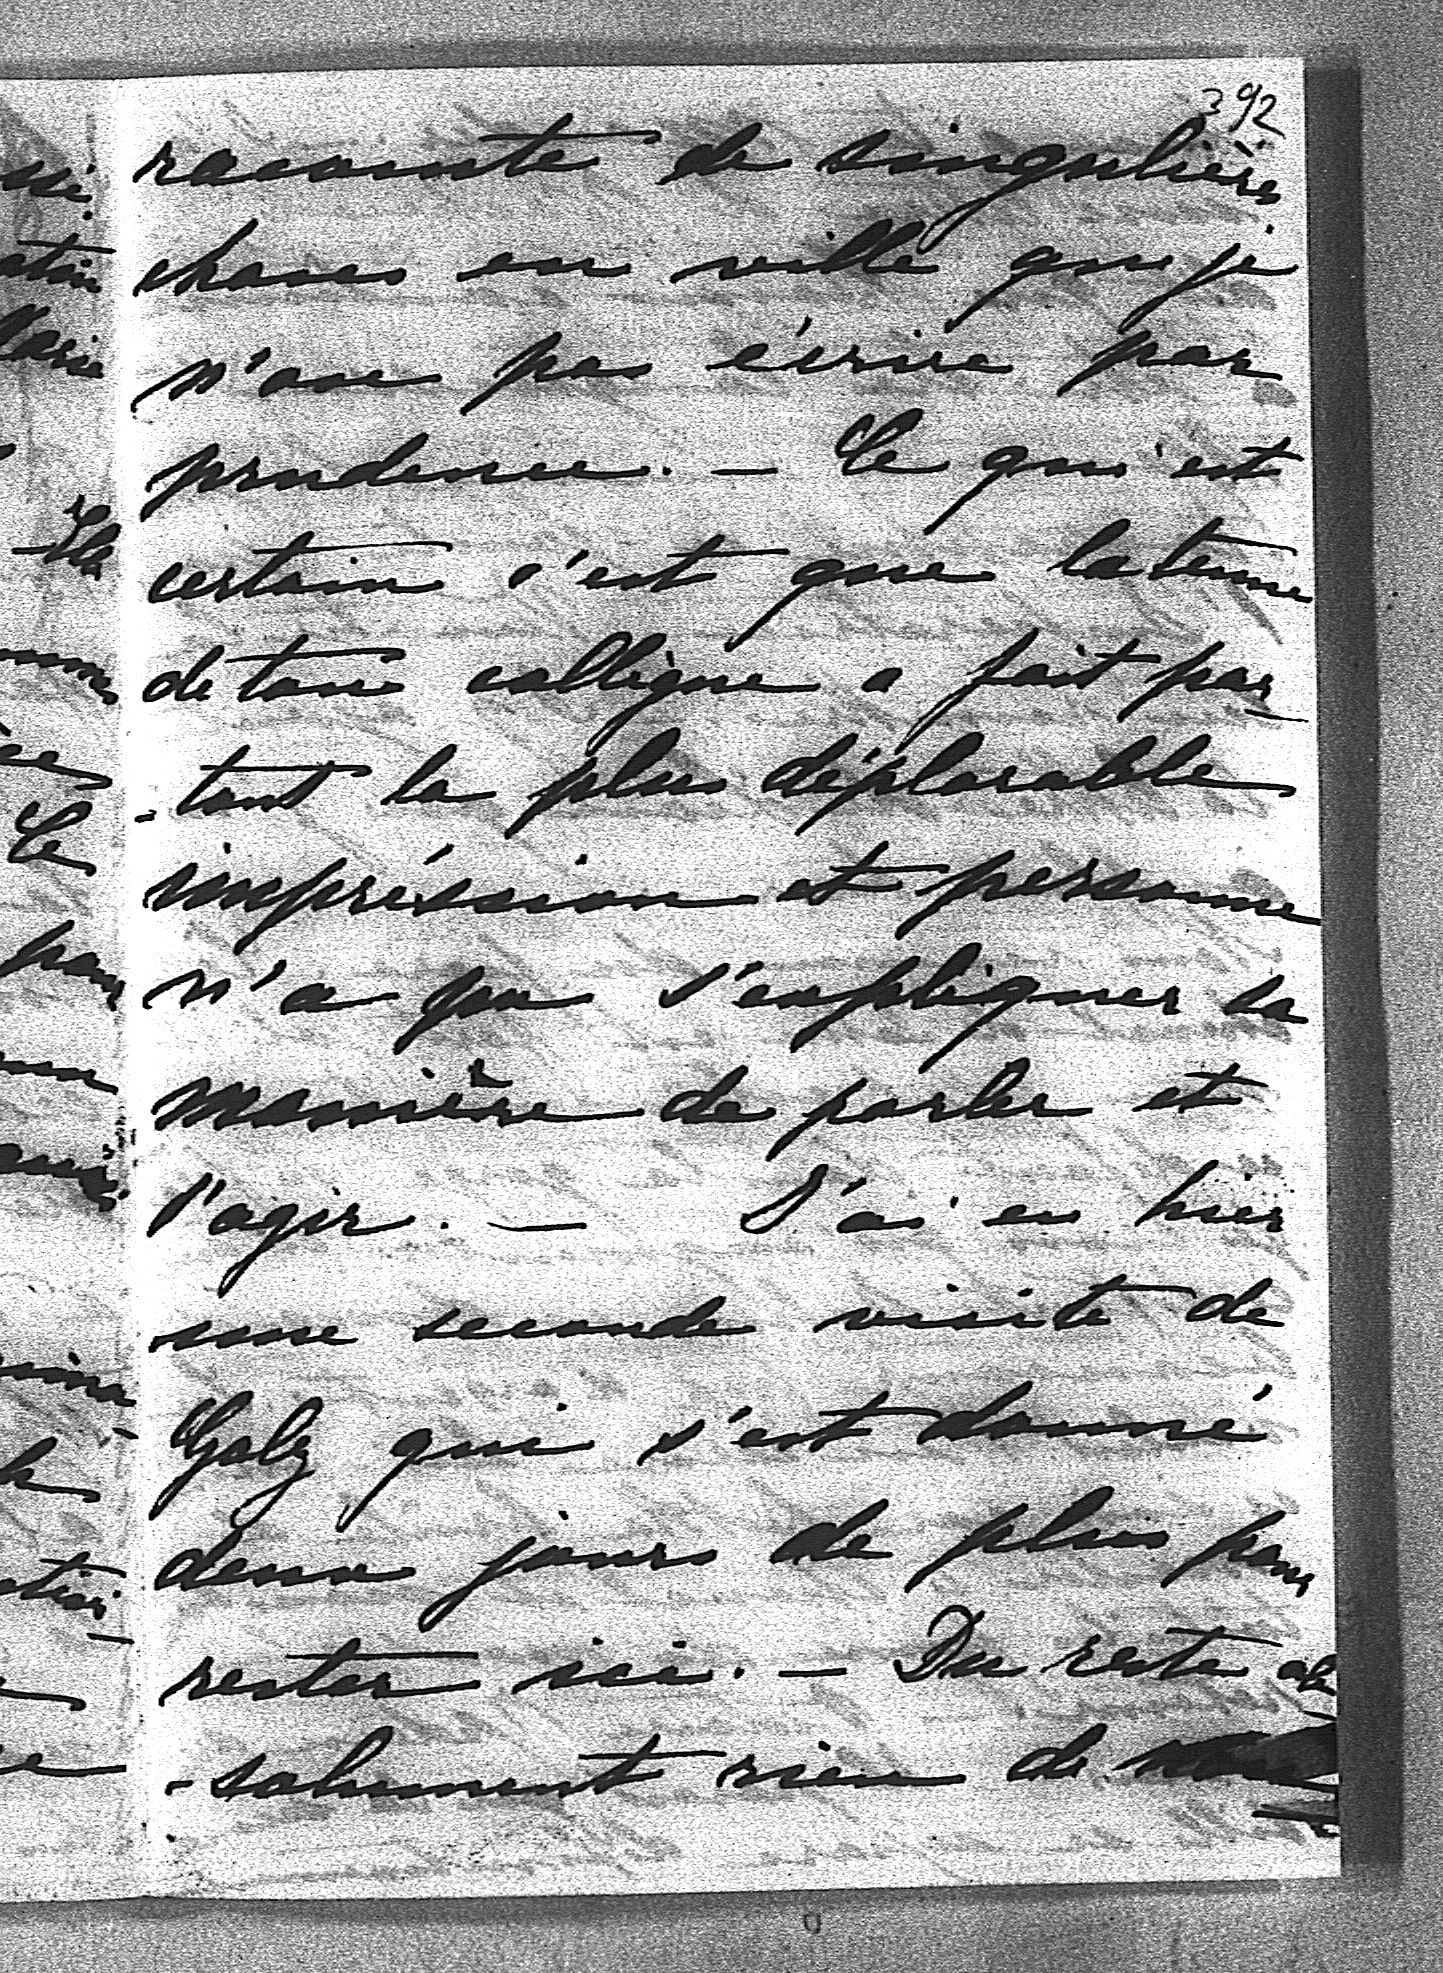 392
raconte de singulières
choses en ville que je
n'ose pas écrire par
prudence. — Ce qui est
certain c'est que la tenue
de ton collègue a fait par-
-tout la plus déplorable
impréssion et personne
n'a pu s'expliquer sa
manière de parler et
d'agir. — J'ai eu hier
une seconde visite de
Golz qui s'est donné
deux jours de plus pour
rester ici. — Du reste ab-
-solument rien de